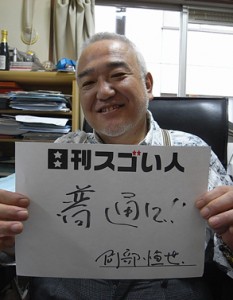 日刊スゴい人
普通に!!
阿部 恒世